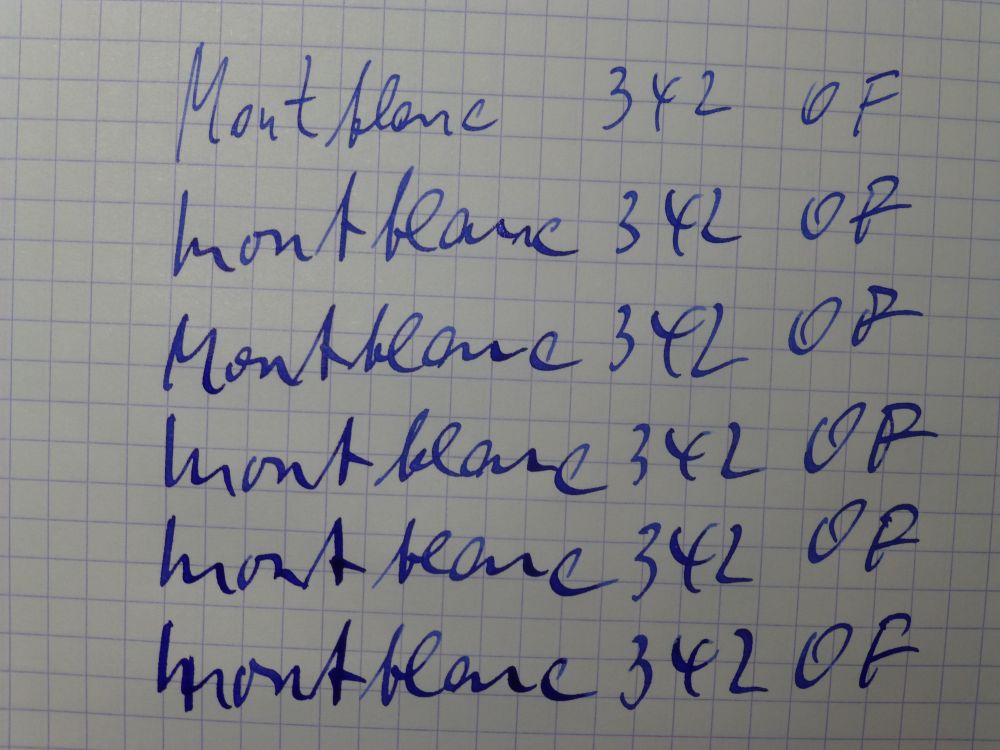 Montblanc 342 OF
montblanc 342 OF
Montblanc 342 OF
montblanc 342 OF
montblanc 342 OF
montblanc 342 OF